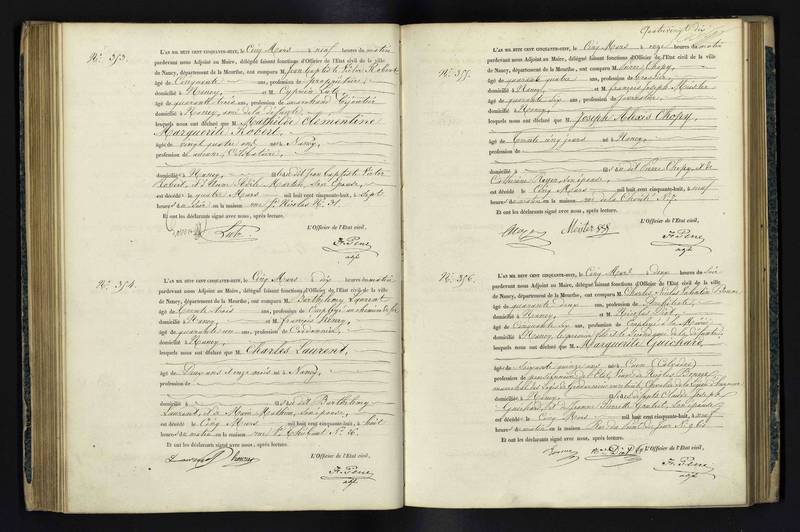 N.º 353.
L'AN MIL HUIT CENT CINQUANTE-HUIT, le Cinq Mars à neuf heures du matin
pardevant nous Adjoint au Maire, délégué faisant fonctions d'Officier de l'État civil de la ville
de Nancy, département de la Meurthe, ont comparu M. Jean Baptiste Victor Robert
âgé de Cinquante ans, profession de propriétaire,
domicilié à Nancy, et M. Cyprien Lutz,
âgé de quarante trois ans, profession de marchand
domicilié à Nancy, ami de la défunte
lesquels nous ont déclaré que M. Mathilde Clémentine
Marguerite Robert,
âgée de vingt quatre ans né à Nancy,
profession de Célibataire,
domicilié à Nancy, fille du dit Jean Baptiste Victor
Robert, et d' son épouse,
est décédé le quatre Mars mil huit cent cinquante-huit, à sept
heures du soir en la maison rue St Nicolas N.º 31.
Et ont les déclarants signé avec nous, après lecture.
L'Officier de l'État civil,
Lutz
Fr. Pene
adj.
N.º 354.
L'AN MIL HUIT CENT CINQUANTE-HUIT, le Cinq Mars à dix heures du matin
pardevant nous Adjoint au Maire, délégué faisant fonctions d'Officier de l'État civil de la ville
de Nancy, département de la Meurthe, ont comparu M. Barthélemy Laurent
âgé de trente trois ans, profession de Employé au chemin de fer
domicilié à Nancy et M. François Henry,
âgé de quarante un ans, profession de Cordonnier,
domicilié à Nancy,
lesquels nous ont déclaré que M. Charles Laurent,
âgé de Deux ans et onze mois né à Nancy,
profession de
domicilié à fils du dit Barthélemy
Laurent, et de son épouse,
est décédé le Cinq Mars mil huit cent cinquante-huit, à huit
heures du matin en la maison rue St Thiébaut N.º 26.
Et ont les déclarants signé avec nous, après lecture.
L'Officier de l'État civil,
Laurent henry
Fr. Pene
adj.
Quatrevingt dix
N.º 355.
L'AN MIL HUIT CENT CINQUANTE-HUIT, le Cinq Mars à onze heures du matin
pardevant nous Adjoint au Maire, délégué faisant fonctions d'Officier de l'État civil de la ville
de Nancy, département de la Meurthe, ont comparu M. Pierre Chopy,
âgé de quarante quatre ans, profession de
domicilié à Nancy, et M. François Joseph Meister
âgé de quarante six ans, profession de Journalier,
domicilié à Nancy,
lesquels nous ont déclaré que M. Joseph Alexis Chopy,
âgé de trente cinq jours né à Nancy,
profession de
domicilié à fils du dit Pierre Chopy, et de
Catherine Royer, son épouse,
est décédé le Cinq Mars mil huit cent cinquante-huit, à neuf
heures du matin en la maison rue de la Charité N.º 7.
Et ont les déclarants signé avec nous, après lecture.
L'Officier de l'État civil,
Meister
Fr. Pene
adj.
N.º 356.
L'AN MIL HUIT CENT CINQUANTE-HUIT, le Cinq Mars à deux heures du soir
pardevant nous Adjoint au Maire, délégué faisant fonctions d'Officier de l'État civil de la ville
de Nancy, département de la Meurthe, ont comparu M. Charles Nicolas
âgé de quarante deux ans, profession de
domicilié à Nancy, et M. Nicolas
âgé de Cinquante six ans, profession de Employé à la Mairie
domicilié à Nancy, le premier fils et le second ami de la défunte
lesquels nous ont déclaré que M. Marguerite Guichard,
âgée de Soixante quinze ans né à Caen (Calvados)
profession de pensionnaire de l'État, Veuve de Nicolas
maréchal des logis de Gendarmerie en retraite, Chevalier de la Légion d'honneur
domicilié à Nancy, fille de Joseph
Guichard, et de Jeanne son épouse
est décédé le Cinq Mars mil huit cent cinquante-huit, à
heures du matin en la maison Rue du
Et ont les déclarants signé avec nous, après lecture.
L'Officier de l'État civil,
Fr. Pene
adj.